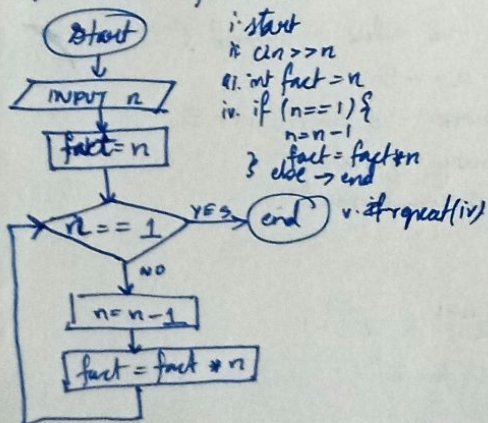 Start
INPUT n
fact = n
n == 1
YES
end
NO
n = n - 1
fact = fact * n
i. start
ii. cin >> n
iii. int fact = n
iv. if (n==1) {
n = n - 1
fact = fact * n
} else → end
v. repeat (iv)